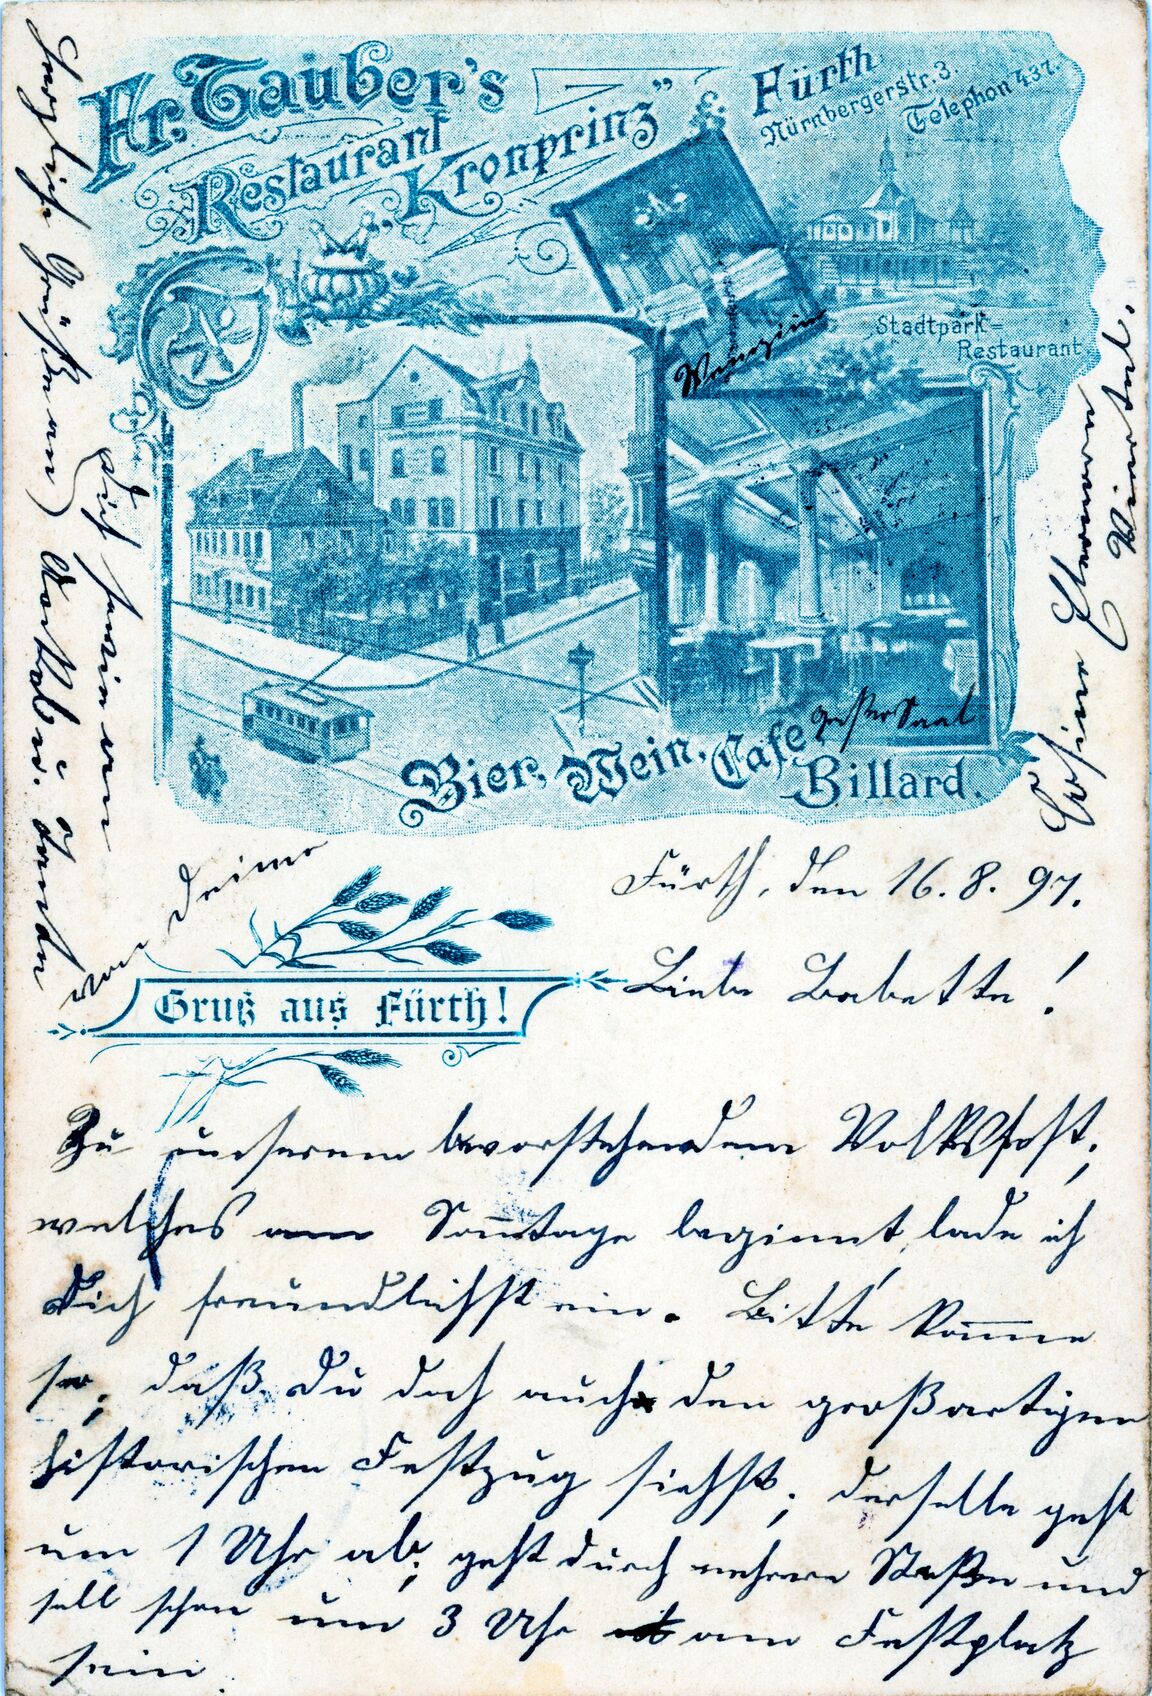 Fr. Tauber's
Restaurant
„Kronprinz”
Fürth
Nürnbergerstr. 3.
Telephon 437.
Stadtpark-
Restaurant
Weinzim
großer Saal
Bier, Wein, Cafe
Billard.
Gruß aus Fürth!
Fürth, den 16. 8. 97.
Liebe Babette!
Zu unserem bevorstehenden Volksfest,
welches am Sonntage beginnt, lade ich
Dich freundlichst ein. Bitte komme
so, daß Du doch auch den großartigen
historischen Festzug siehst, derselbe geht
um 1 Uhr ab, geht durch mehrere Straßen und
soll schon um 3 Uhr am Festplatz
sein.
Herzliche Grüße an
Dich sowie an
von Deiner